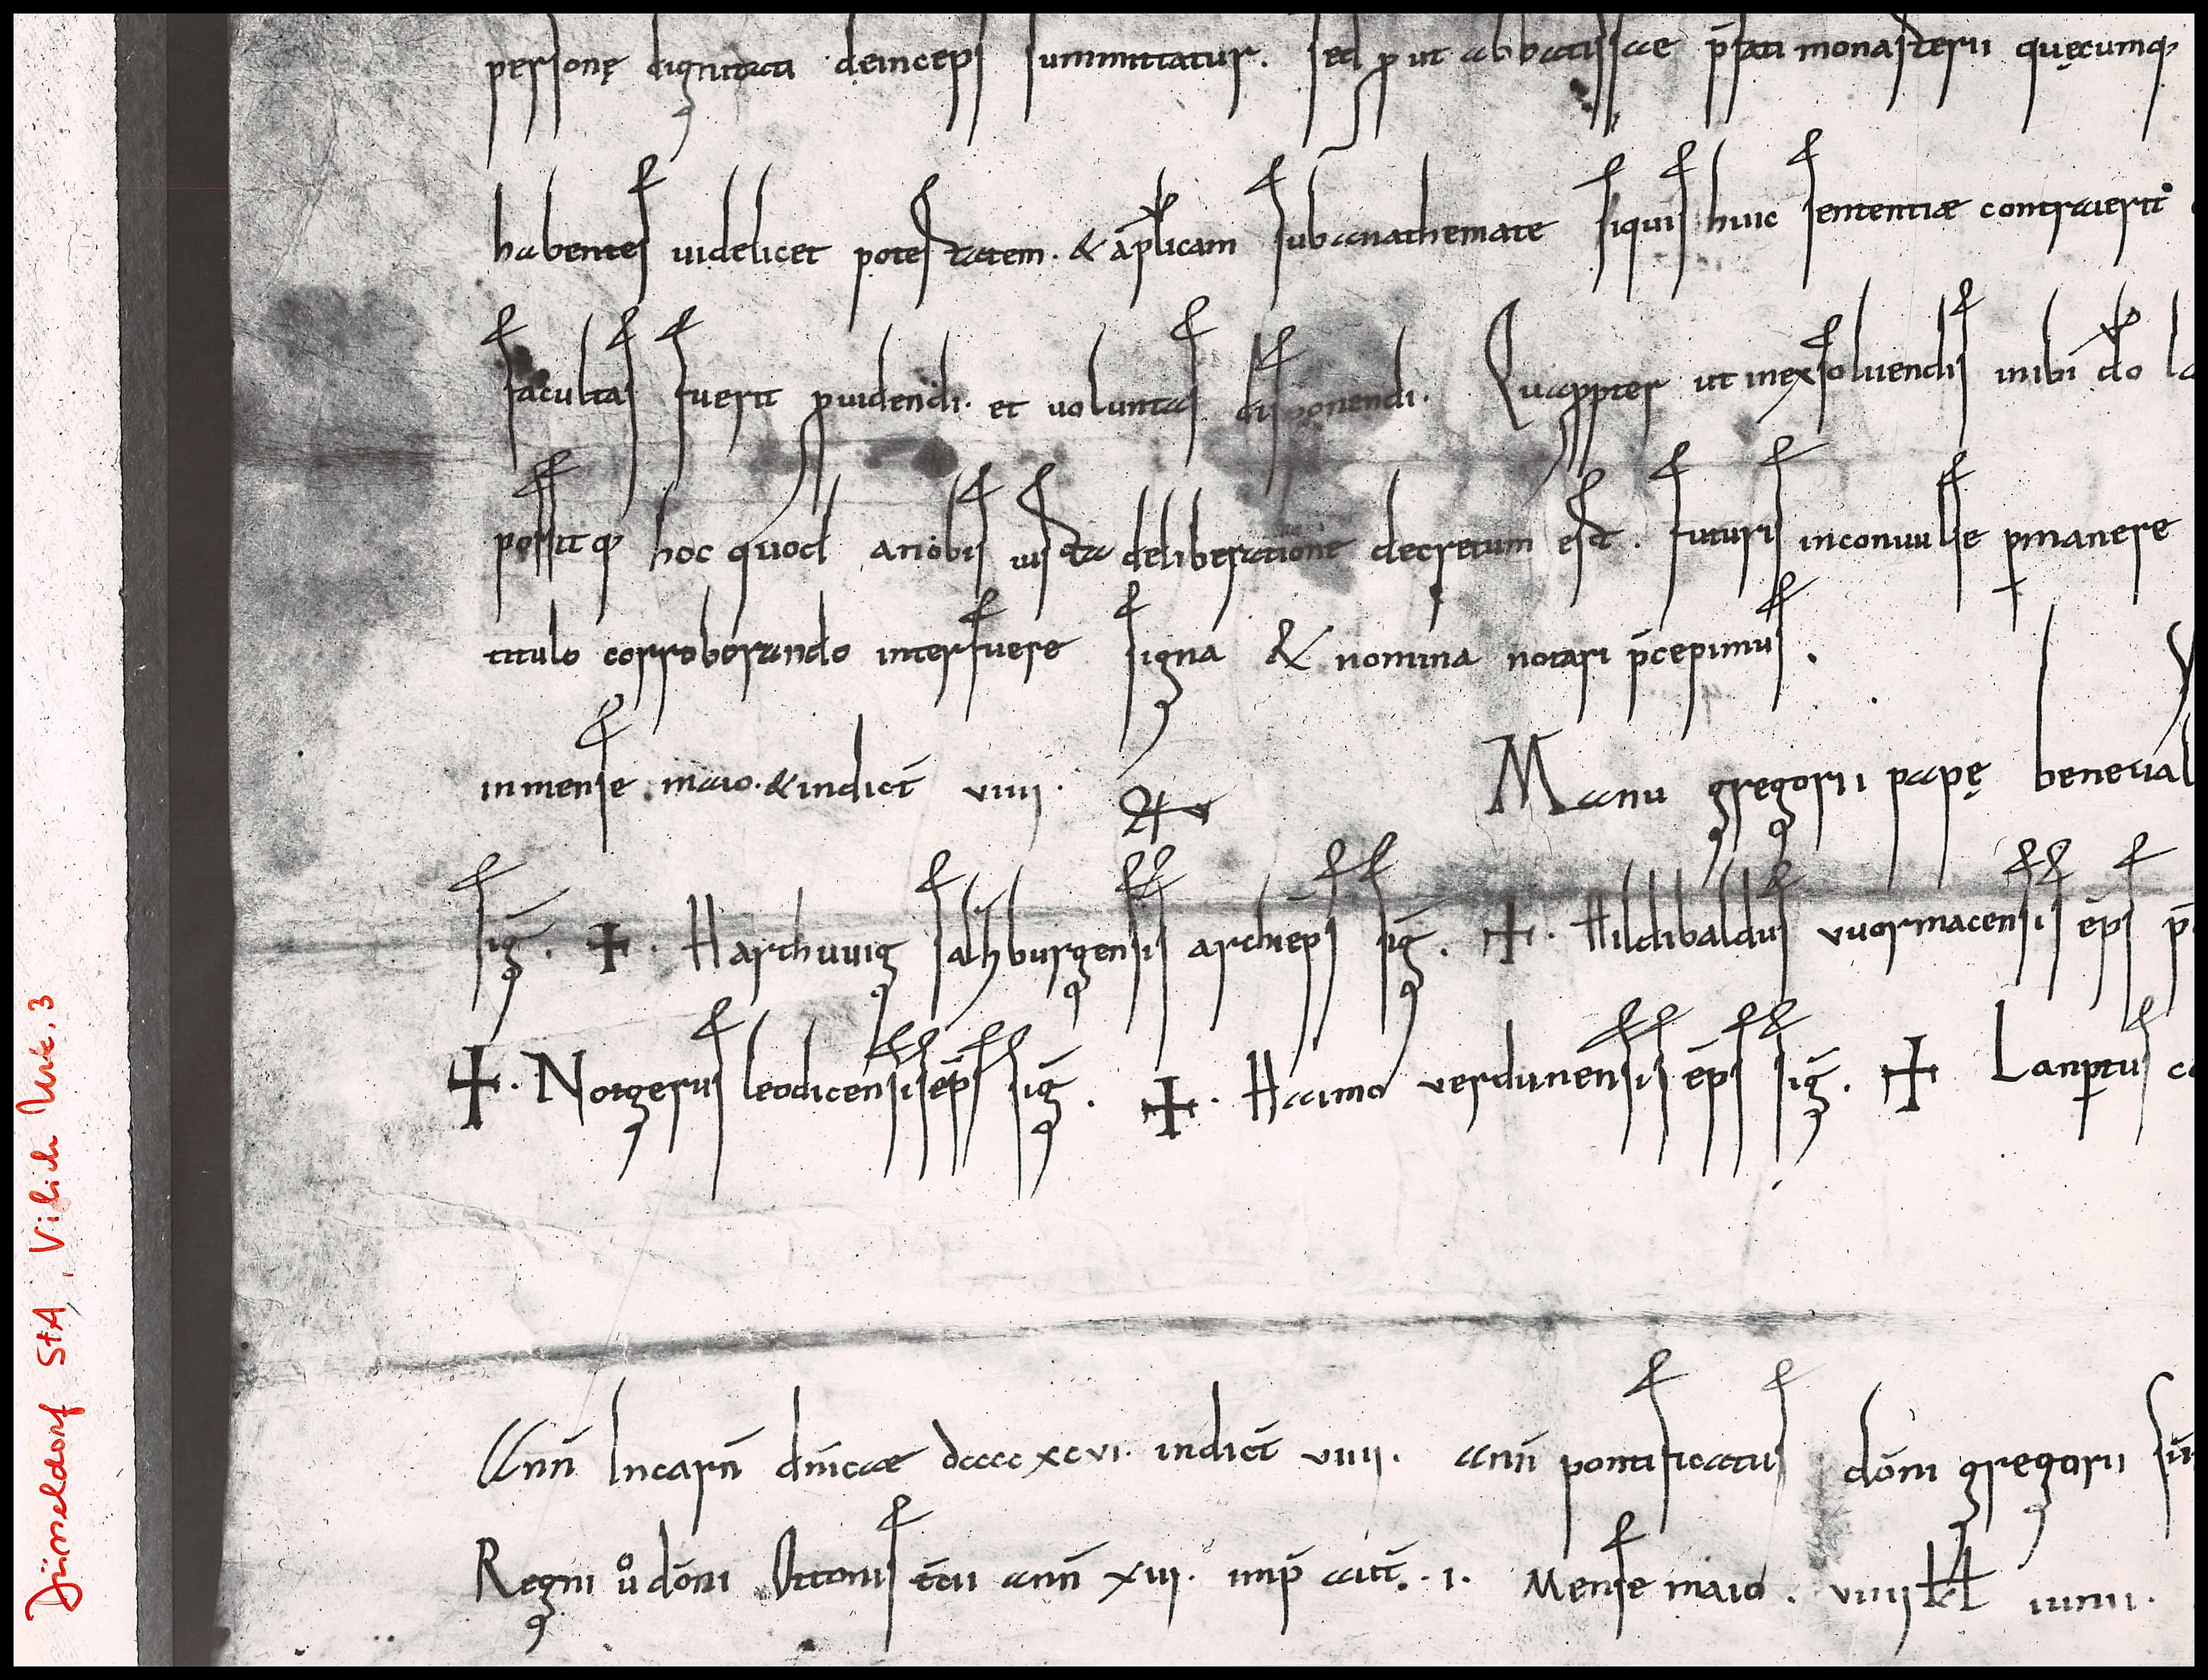 personę dignitati deinceps summittatur. sed ꝓut abbatissae p̄fati monasterii quęcumq;
habentes uidelicet potestatem. & ap̄licam subanathemate siquis huic sententiæ contraierit
facultas fuerit ꝓuidendi. et uoluntas disponendi. Quaꝓpter ut inexsoluendis inibi d̄o la
possitq; hoc quod anobis iusta deliberatione decretum est. futuris inconuulse ꝑmanere
titulo corroborando interfuere signa & nomina notari p̄cepimus.
inmense maio. & indict̄ viiii. Manu gregorii papę beneual
sig̅. ✝. Harthuuig salzburgensis archiep̄s sig̅. ✝. Hildibaldus vuormacensis ep̄s p̄
✝. Notgerus leodicensis ep̄s sig̅. ✝. Haimo verdunensis ep̄s sig̅. ✝ Lanꝑtus co
Ann̄ Incarn̄ dn̄icae dcccc xcvi. indict̄ viiii. ann̄ pontificatus dōm̄ni gregorii sūm
Regni ů dōmni Ottonis t̄cii ann̄ xiii. imp̄ aut̄. i. Mense maio. viiii kł iunii.
Düsseldorf StA, Vilich Urk. 3